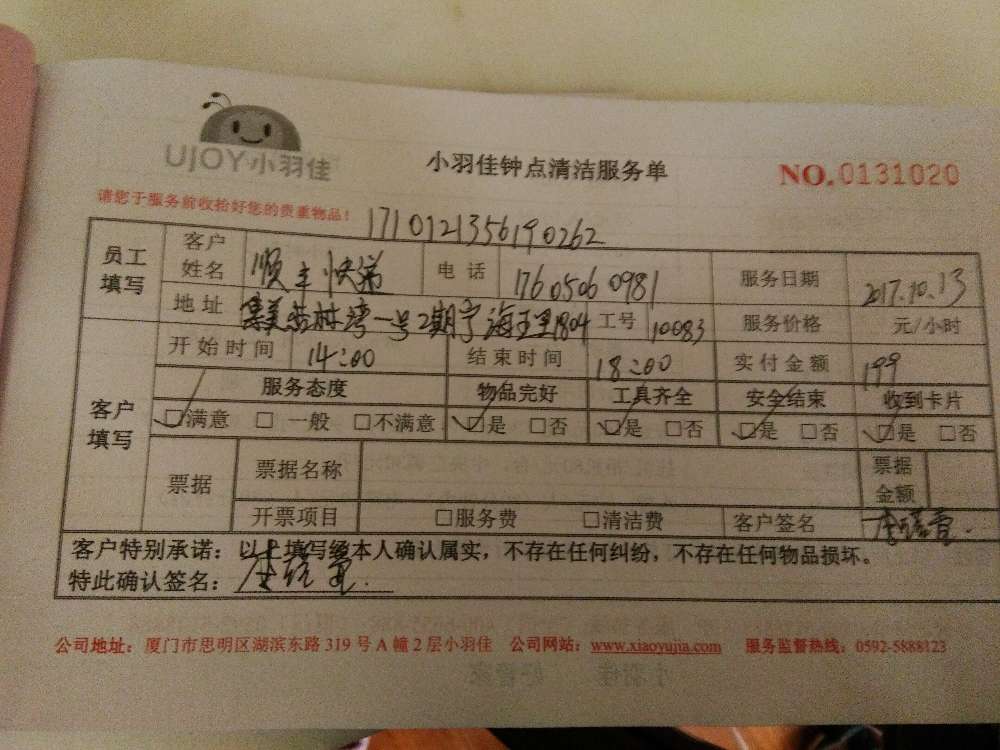 UJOY小羽佳
小羽佳钟点清洁服务单
NO.0131020
请您于服务前收拾好您的贵重物品!
171012135619 0262
员工填写 客户姓名 顺丰快递 电话 176 0506 0981 服务日期 2017.10.13
地址 集美杏林湾一号2期宁海五里1804 工号 10083 服务价格 元/小时
开始时间 14:00 结束时间 18:00 实付金额 199
客户填写 服务态度 物品完好 工具齐全 安全结束 收到卡片
☑满意 □一般 □不满意 ☑是 □否 ☑是 □否 ☑是 □否 ☑是 □否
票据 票据名称 票据金额
开票项目 □服务费 □清洁费 客户签名
客户特别承诺：以上填写经本人确认属实，不存在任何纠纷，不存在任何物品损坏。
特此确认签名：
公司地址：厦门市思明区湖滨东路319号A幢2层小羽佳 公司网站：www.xiaoyujia.com 服务监督热线：0592-5888123